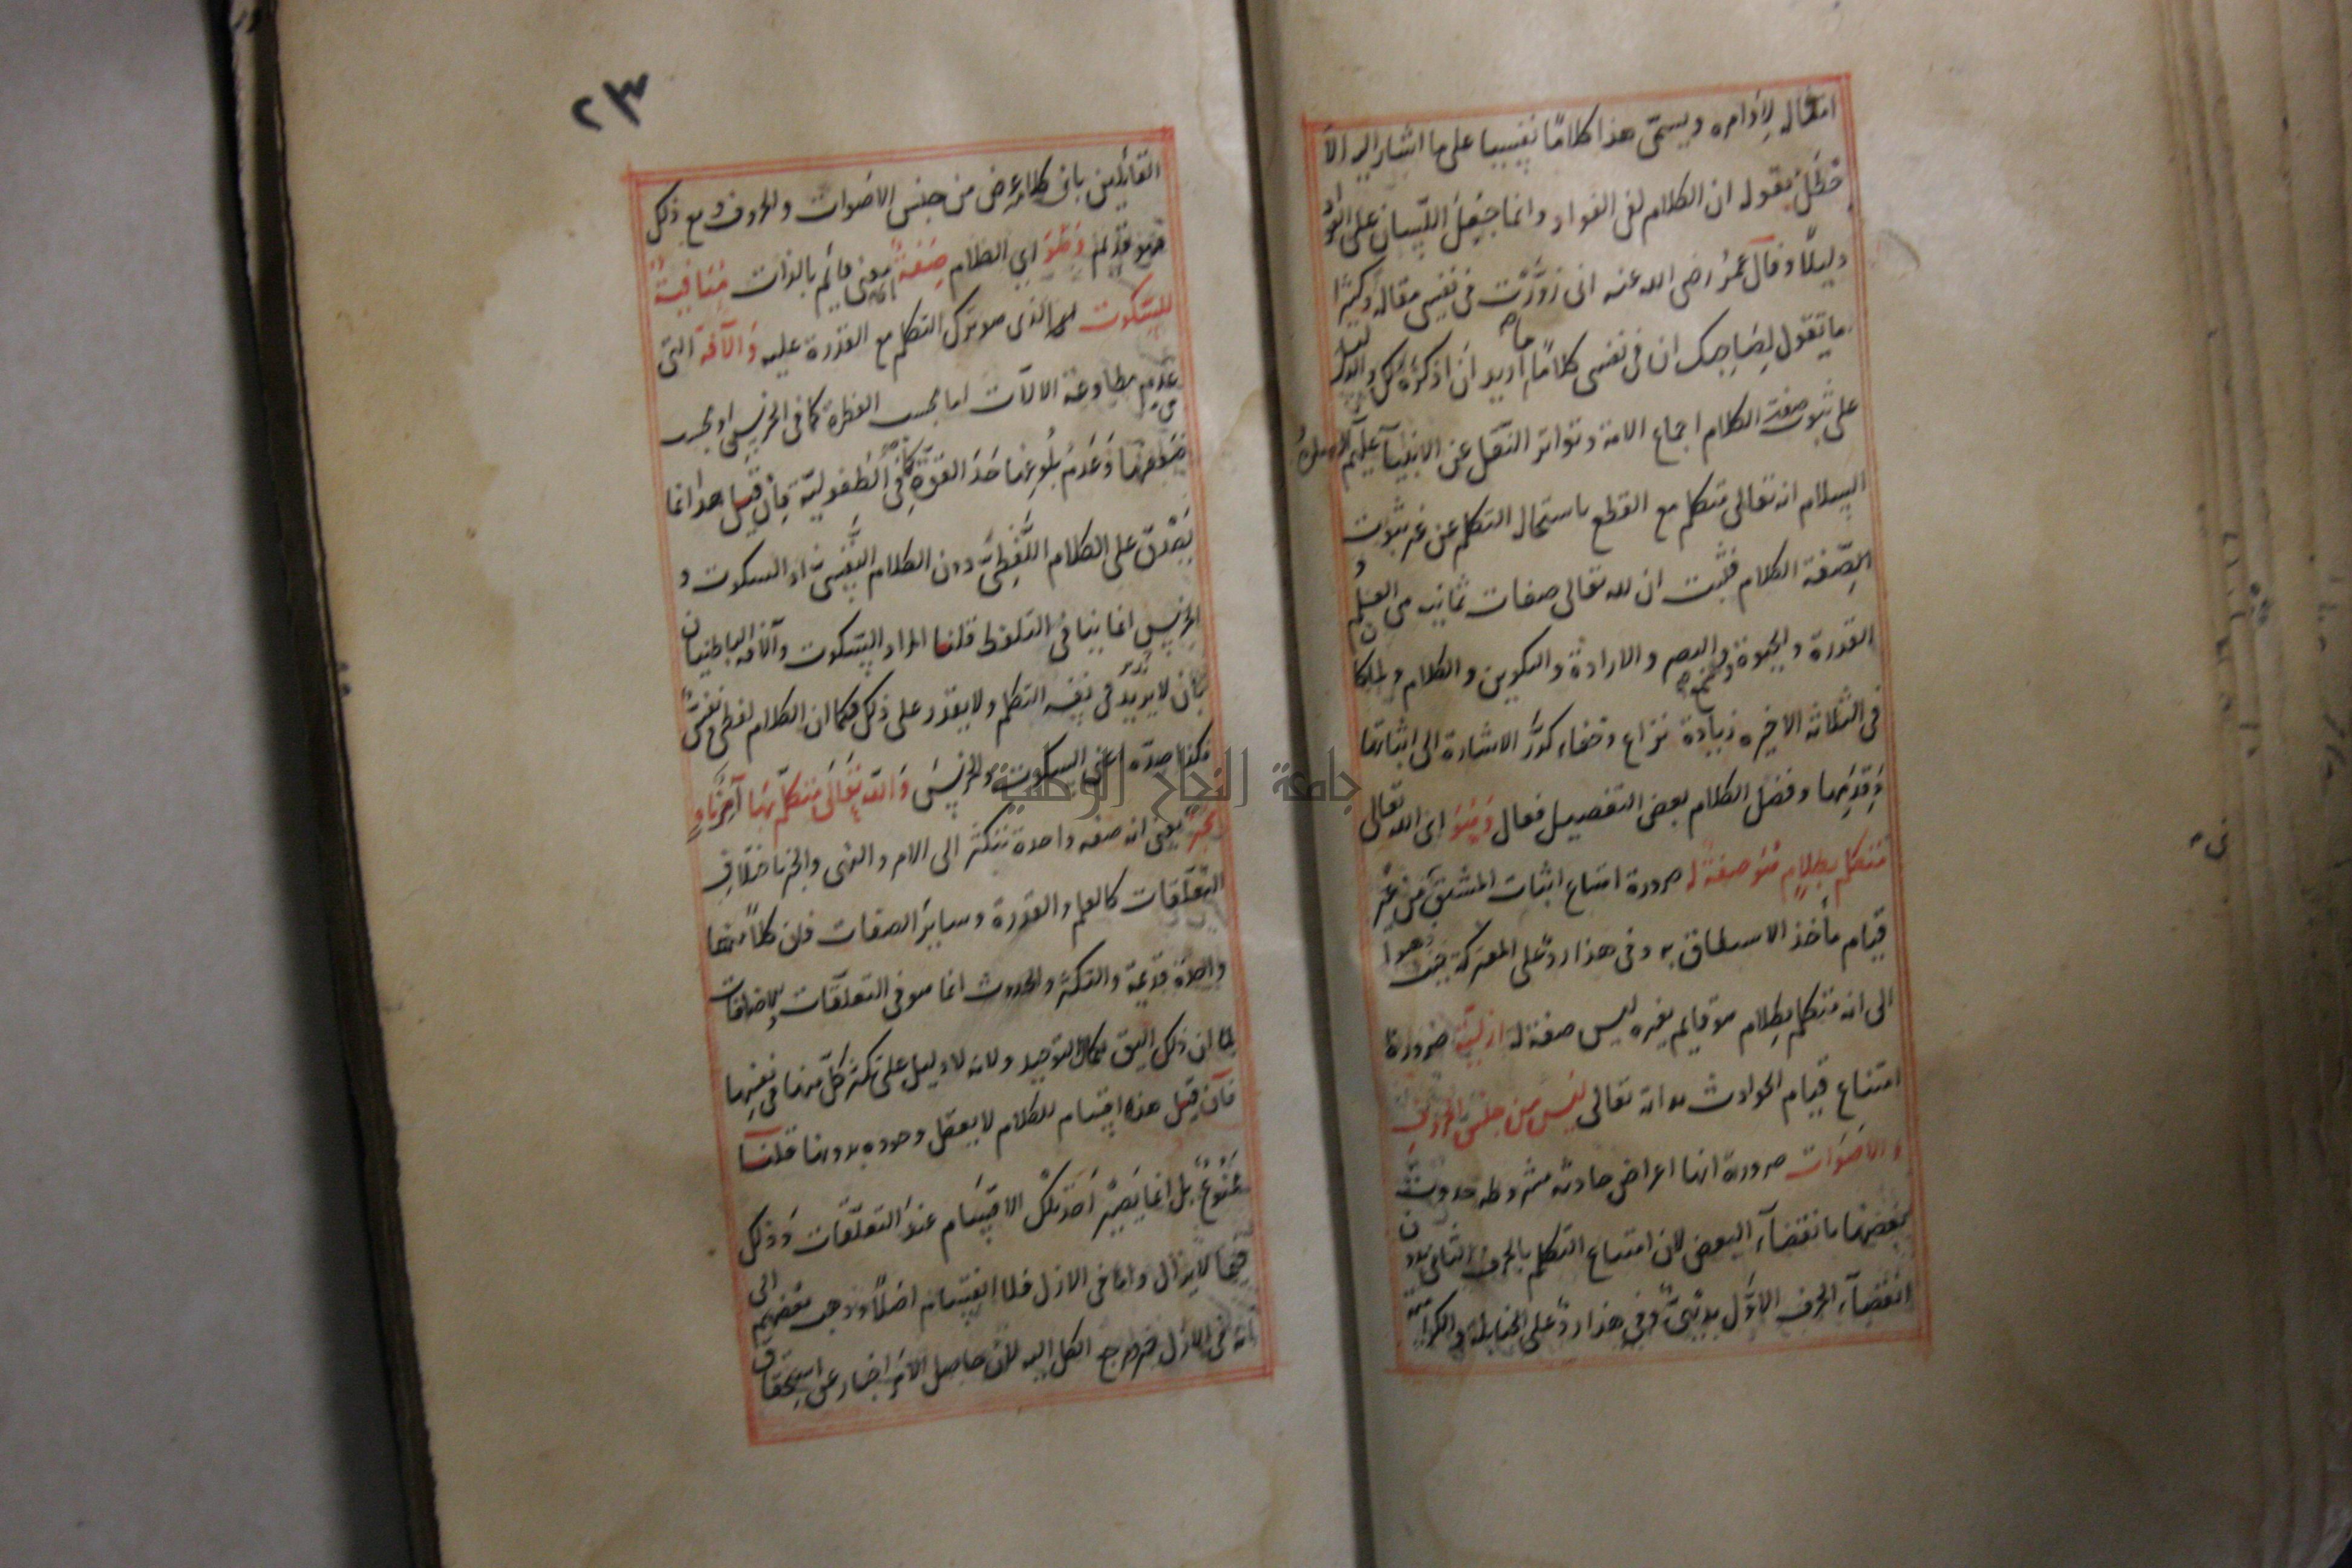 امتثال لاوامره ويسمى هذا كلاما نفسيا على ما اشار اليه الا
خطل بقوله ان الكلام لفى الفواد وانما جعل اللسان على الفواد
دليلا وقال عمر رضى الله عنه انى زورت فى نفسى مقالة وكثيرا
ما تقول لصاحبك ان فى نفسى كلاما اريد ان اذكره لك والدليل
على ثبوت صفة الكلام اجماع الامة وتواتر النقل عن الانبيآء عليهم
السلام انه تعالى متكلم مع القطع باستحال التكلم عن غير ثبوت
الصفة الكلام فثبت ان لله تعالى صفات ثمانيه هى العلم و
القدرة والحيوة والسمع والبصر والارادة والتكوين والكلام ولما كان
فى الثلاثة الاخيره زيادة نزاع وخفاء كرر الاشارة الى اثباتها
وقدمها وفصل الكلام بعض التفصيل فقال وهو اى الله تعالى
متكلم بكلام هو صفة له ضرورة امتناع اثبات المشتق من غير
قيام ماخذ الاشتقاق به وفى هذا رد على المعتزلة حيث ذهبوا
الى انه متكلم بكلام هو قايم بغيره ليس صفة له ازلية ضرورة
امتناع قيام الحوادث بذاته تعالى ليس من جنس الحروف
والاصوات ضرورة انها اعراض حادثه مشروطه حدوث
بعضها بانقضآء البعض لان امتناع التكلم بالحرف الثانى بدون
انقضآء الحرف الاول بديهى وفى هذا رد على الحنابلة والكرامية
٢٣
القايلين بان كلامه عرض من جنس الاصوات والحروف ومع ذلك
فهو قديم وهو اى الكلام صفة اى معنى قائم بالذات منافية
للسكوت الذى هو ترك التكلم مع القدرة عليه والآفة التى
هى عدم مطاوعة الالات اما بحسب الفطرة كما فى الخرس او بحسب
ضعفها وعدم بلوغها حد القوة كما فى الطفولية فان قيل هذا انما
يصدق على الكلام اللفظى دون الكلام النفسى اذ السكوت و
الخرس انما ينافى التلفظ قلنا المراد السكوت والآفه الباطنيان
بان لا يريد فى نفسه التكلم ولا يقدر على ذلك فكما ان الكلام لفظى ونفسى
فكذا ضده اعنى السكوت والخرس والله تعالى متكلم بها آمر ناه
مخبر يعنى انه صفه واحدة تتكثر الى الامر والنهى والخبر باختلاف
التعلقات كالعلم والقدرة وساير الصفات فان كلا منها
واحدة قديمة والتكثر والحدوث انما هو فى التعلقات والاضافات
لما ان ذلك اليق بكمال التوحيد ولانه لا دليل على تكثر كل منها فى نفسها
فان قيل هذه اقسام للكلام لا يعقل وجوده بدونها قلنا
ممنوع بل انما يصير احد تلك الاقسام عند التعلقات وذلك
فيما لا يزال واما فى الازل فلا انقسام اصلا وذهب بعضهم الى
انه فى الازل خبر ومرجع الكل اليه لان حاصل الامر اخبار عن استحقاق
جامعة النجاح الوطنية